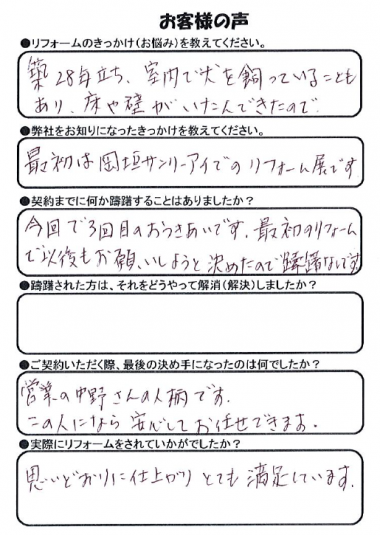 お客様の声
●リフォームのきっかけ(お悩み)を教えてください。
築28年立ち、室内で犬を飼っていることも
あり、床や壁がいたんできたので
●弊社をお知りになったきっかけを教えてください。
最初は岡垣サンリーアイでのリフォーム展です
●契約までに何か躊躇することはありましたか?
今回で3回目のおつきあいです。最初のリフォーム
で以後もお願いしようと決めたので躊躇なしです
●躊躇された方は、それをどうやって解消(解決)しましたか?
●ご契約いただく際、最後の決め手になったのは何でしたか?
営業の中野さんの人柄です。
この人になら安心してお任せできます。
●実際にリフォームをされていかがでしたか?
思いどおりに仕上がりとても満足しています。